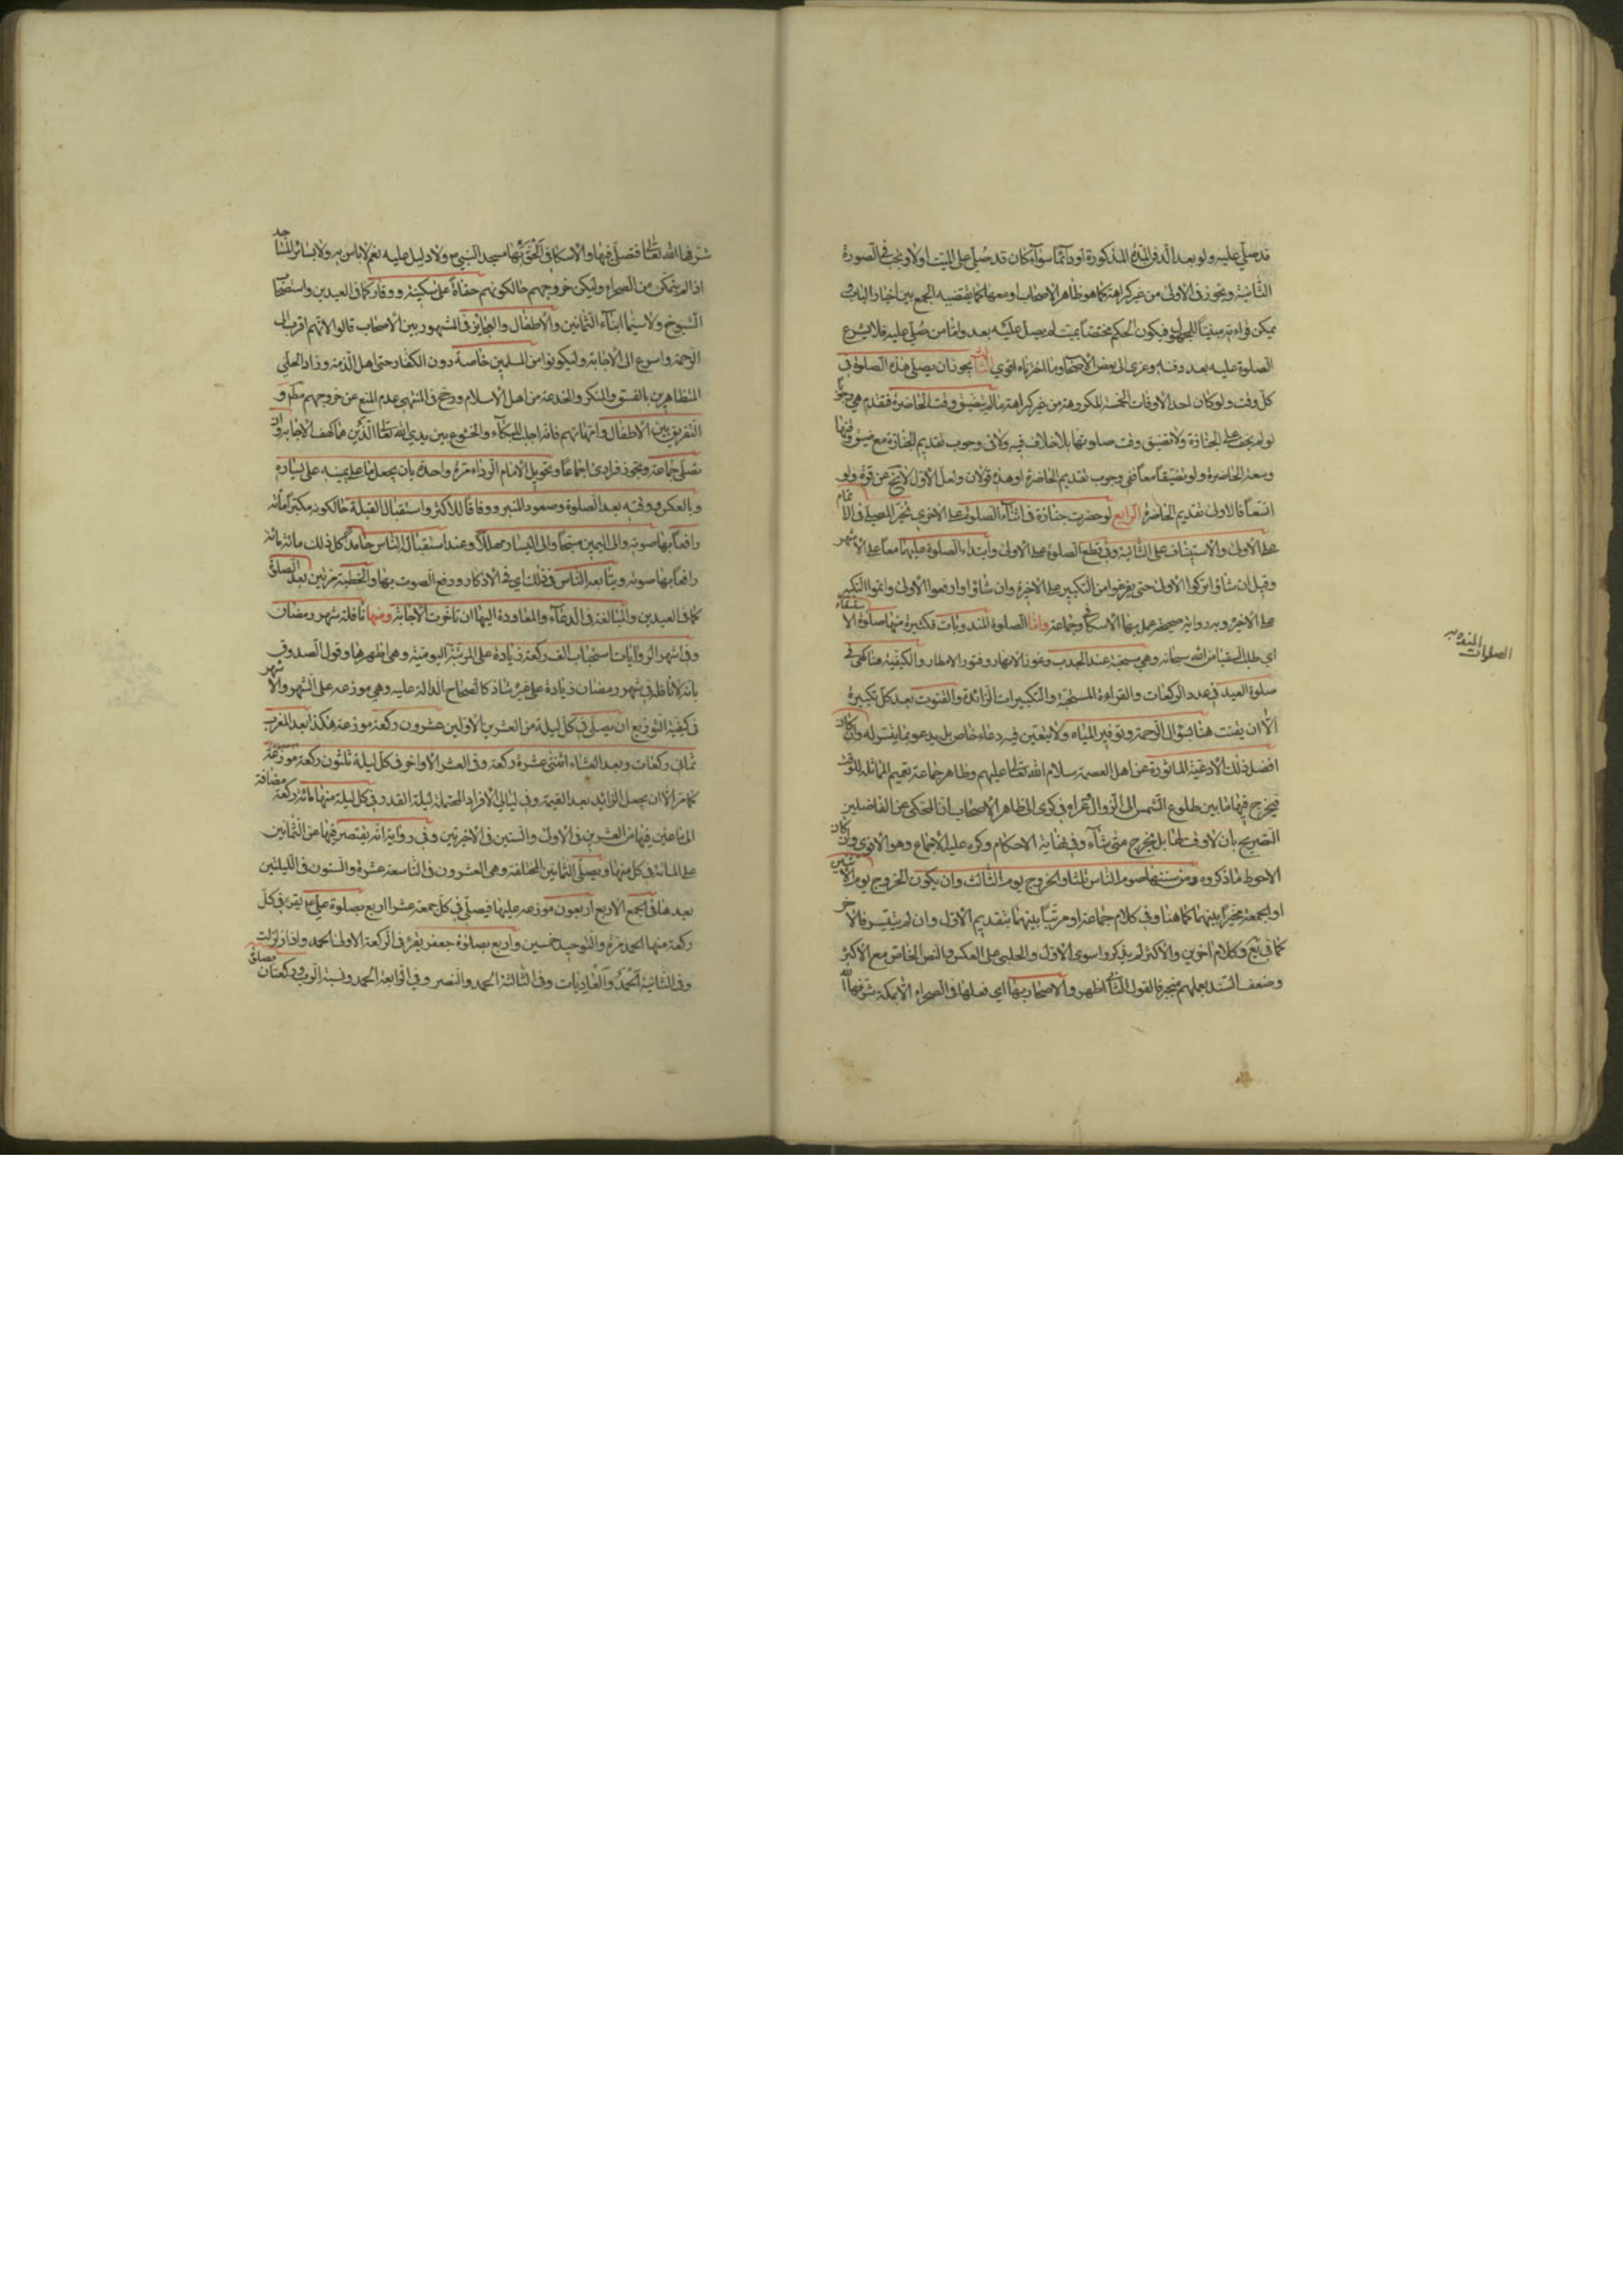 قد صلي عليه ولو بعد الدفن المدة المذكورة او دائما سوآء كان قد صلي على الميت اولا ويجب في الصورة
الثانية ويجوز في الاولى من غير كراهة كما هو ظاهر الاصحاب او معها كما يقتضيه الجمع بين اخبار الباب و
يمكن قراءته مبنيا للمجهول فيكون الحكم مختصا بميت لم يصل عليه بعد واما من صلي عليه فلا يشرع
الصلوة عليه بعد دفنه وعزى الى بعض الاصحاب وما اخترناه اقوى الثالث يجوز ان يصلي هذه الصلوة في
كل وقت ولو كان احد الاوقات الخمسة المكروهة من غير كراهة ما لم يتضيق وقت الحاضرة فتقدم هي وجوبا
لو لم يخف على الجنازة ولا تضيق وقت صلوتها بلا خلاف فيه ولا في وجوب تقديم الجنازة مع ضيق وقتها
وسعة الحاضرة ولو تضيقا معا ففي وجوب تقديم الحاضرة او هذه قولان ولعل الاول لا يخ عن قوة ولو
اتسعا فالاولى تقديم الحاضرة الرابع لو حضرت جنازة في اثناء الصلوة على الاخرى تخير المصلي في الاتمام
على الاولى والاستيناف على الثانية وفي قطع الصلوة على الاولى وابتداء الصلوة عليهما معا على الاشهر
وقيل ان شاؤا تركوا الاولى حتى يفرغوا من التكبير على الاخيرة وان شاؤا رفعوا الاولى واتموا التكبير
على الاخيرة وبه رواية صحيحة عمل بها الاسكافي وجماعة واما الصلوة المندوبات فكثيرة منها صلوة الاستسقاء
اي طلب السقيا من الله سبحانه وهي مستحبة عند الجدب وغور الانهار وفتور الامطار والكيفية هنا كهي في
صلوة العيد في عدد الركعات والقراءة المستحبة والتكبيرات الزائدة والقنوت بعد كل تكبيرة
الا ان يقنت هنا بسؤال الرحمة وتوفير المياه ولا يتعين فيه دعاء خاص بل يدعو بما يتيسر له وان كان
افضل ذلك الادعية الماثورة عن اهل العصمة سلام الله تعالى عليهم وظاهر جماعة تعميم المماثلة للوقت
فيخرج فيها ما بين طلوع الشمس الى الزوال وفي كرى الى ظاهر الاصحاب ان المحكي عن الفاضلين
التصريح بان لا وقت لها بل يخرج متى شآء وفي نهاية الاحكام وكره عليه الاجماع وهو الاقوى وان كان
الاحوط ما ذكروه ومن سننها صوم الناس ثلثا والخروج يوم الثالث وان يكون الخروج يوم الاثنين
او الجمعة مخيرا بينهما كما هنا وفي كلام جماعة او مرتبا بينهما بتقديم الاول وان لم يتيسر فالاخر
كما في يع وكلام اخرين والاكثر لم يذكروا سوى الاول والحلبي على العكس والنص الخاص مع الاكثر
وضعف السند بعملهم منجبر فالقول الثاني اظهر والاصحار بها اي فعلها في الصحراء الا بمكة شرفها الله
الصلوات المندوبه
شرفها الله تعالى فتصلى فيها والاسكافي الحق بها مسجد النبي ص ولا دليل عليه نعم لا باس به ولا بسائر المساجد
اذا لم يتمكن من الصحراء وليكن خروجهم حالكونهم حفاة على سكينة ووقار كما في العيدين واستصحاب
الشيوخ ولا سيما ابناء الثمانين والاطفال والعجائز في المشهور بين الاصحاب قالوا لانهم اقرب الى
الرحمة واسرع الى الاجابة وليكونوا من المسلمين خاصة دون الكفار حتى اهل الذمة وزاد الحلي
المتظاهرين بالفسق والمنكر والخدعة من اهل الاسلام ورجح في المنتهى عدم المنع عن خروجهم مطم و
التفريق بين الاطفال وامهاتهم فانه اجلب للبكآء والخشوع بين يدي الله تعالى الذين هما كهف الاجابة وان
تصلى جماعة ويجوز فرادى اجماعا وتحويل الامام الرداء مرة واحدة بان يجعل ما على يمينه على يساره
وبالعكس ووقته بعد الصلوة وصعود المنبر ووفاقا للاكثر واستقبال القبلة حالكونه مكبرا مائة
رافعا بها صوته والى اليمين مسبحا والى اليسار مهللا وعند استقبال الناس حامدا كل ذلك مائة مائة
رافعا بها صوته ويتابعه الناس في ذلك اي في الاذكار ورفع الصوت بها والخطبة مرتين بعد الصلوة
كما في العيدين والمبالغة في الدعآء والمعاودة اليها ان تاخرت الاجابة ومنها نافلة شهر رمضان
وفي اشهر الروايات استحباب الف ركعة زيادة على المرتبة اليومية وهي اظهرها وقول الصدوق
بانه لا نافلة في شهر رمضان زيادة على غيره شاذ كالصحاح الدالة عليه وهي موزعة على الشهر والاشهر
في كيفية التوزيع ان يصلي في كل ليلة من العشرين الاولين عشرون ركعة موزعة هكذا بعد المغرب
ثمان ركعات وبعد العشاء اثنتي عشرة ركعة وفي العشر الاواخر في كل ليلة ثلثون ركعة موزعة
كما مر الا ان يجعل الزائد بعد العتمة وفي ليالي الافراد المحتملة ليلة القدر في كل ليلة منها مائة ركعة مضافة
الى ما عين فيها من العشرين في الاولى والستين في الاخيرتين وفي رواية انه يقتصر فيها عن الثمانين
على المائة في كل منها ويصلي الثمانين المختلفة وهي العشرون في التاسعة عشرة والستون في الليلتين
بعدها في الجمع الاربع اربعون موزعة عليها فيصلي في كل جمعة عشرا اربع بصلوة علي ع يقرء في كل
ركعة منها الحمد مرة والتوحيد خمسين واربع بصلوة جعفر يقرء في الركعة الاولى الحمد واذا زلزلت
وفي الثانية الحمد والعاديات وفي الثالثة الحمد والنصر وفي الرابعة الحمد ونسبة الرب وركعتان بصلوة